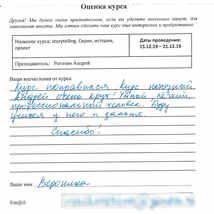 Оценка курса
Друзья! Мы будем очень признательны, если вы уделите несколько минут для
заполнения анкеты. Мы хотим сделать наш курс еще интересней и продуктивней.
Название курса: storytelling. Сцена, история,
проект
Дата проведения:
15.12.19 – 21.12.19
Преподаватель: Рогачин Андрей
Ваши впечатления от курса
Курс понравился. Курс полезный
Андрей очень крут! Умный, легкий,
профессиональный человек. Буду
учиться у него и дальше.
Спасибо!
Ваше имя Вероника
Email